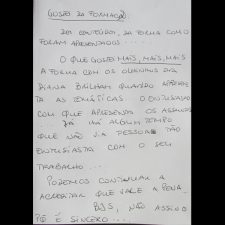 GOSTEI DA FORMAÇÃO:
DOS CONTEÚDOS, DA FORMA COMO
FORAM APRESENTADOS.....
O QUE GOSTEI MAIS, MAIS, MAIS
A FORMA COM OS OLHINHOS DA
DIANA BRILHAM QUANDO APRESEN
TA AS TEMÁTICAS. O ENTUSIASMO
COM QUE APRESENTA OS ASSUNTOS
.... JÁ HÁ ALGUM TEMPO
QUE NÃO VIA PESSOAS TÃO
ENTUSIASTA COM O SEU
TRABALHO...
PODEMOS CONTINUAR A
ACREDITAR QUE VALE A PENA.
BJS, NÃO ASSINO
É SINCERO....